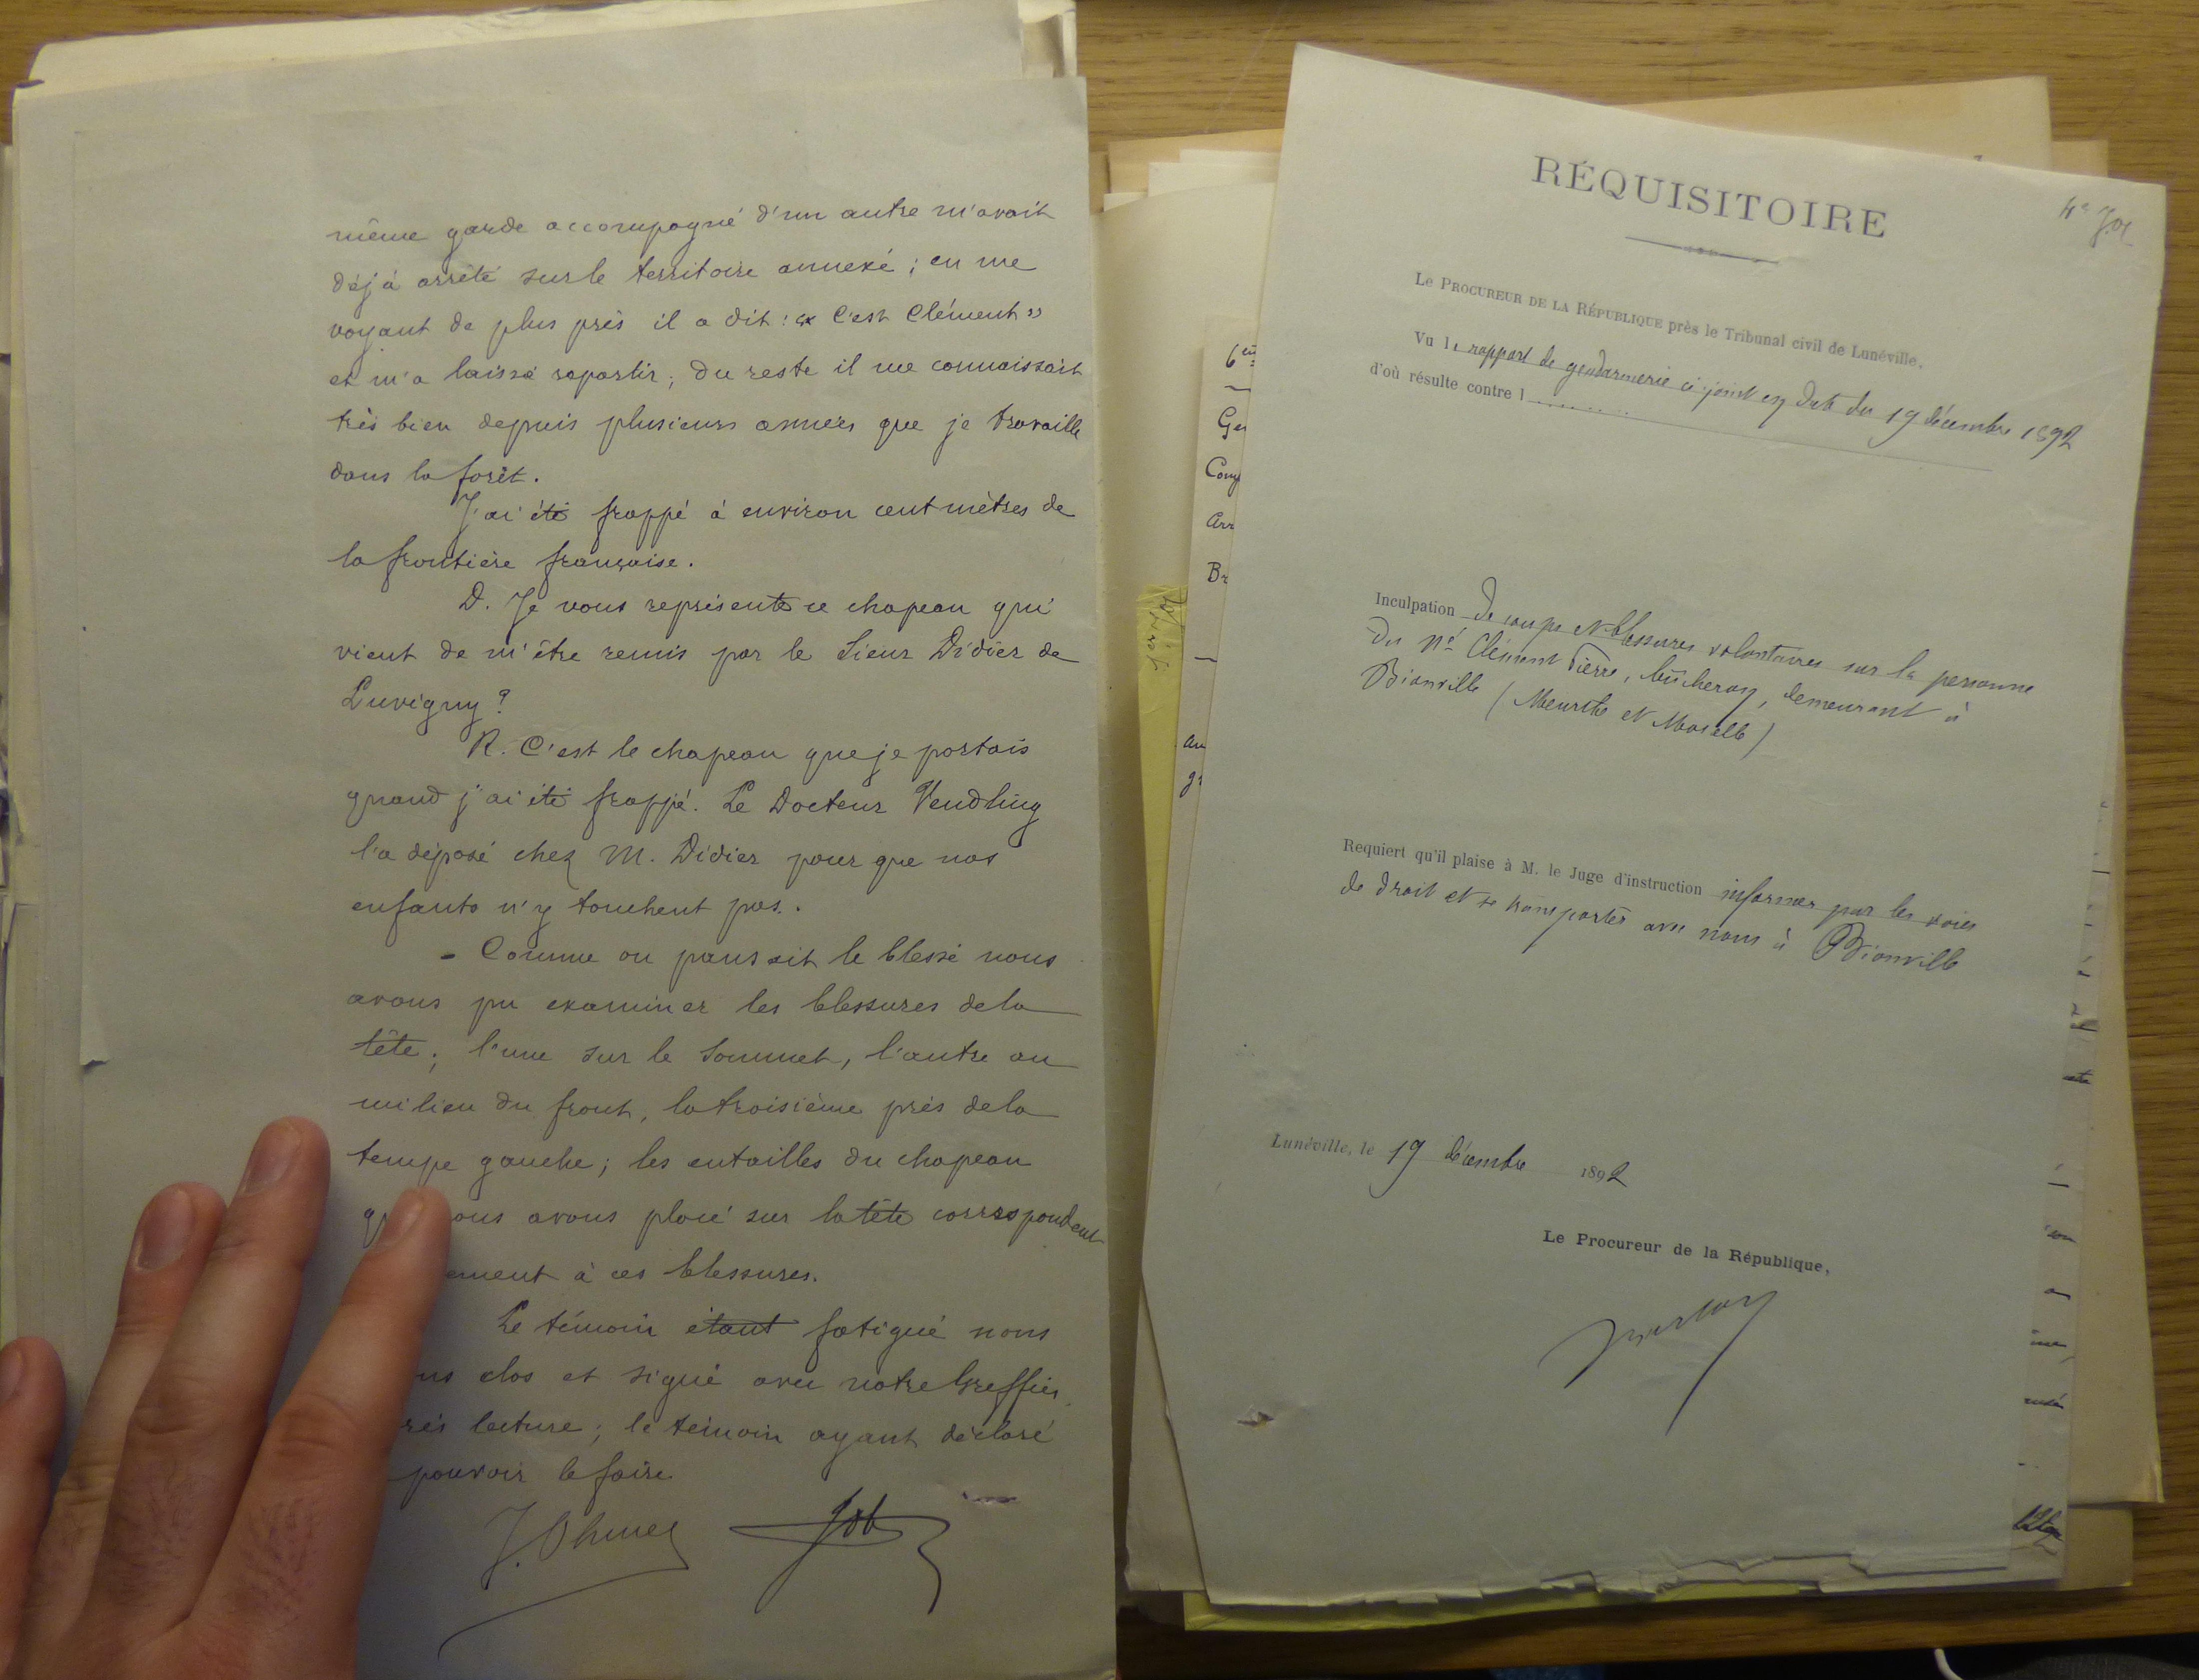 même garde accompagné d'un autre m'avait
déjà arrêté sur le territoire annexé ; en me
voyant de plus près il a dit : « C'est Clément »
et m'a laissé repartir ; du reste il me connaissait
très bien depuis plusieurs années que je travaille
dans la forêt.
J'ai été frappé à environ cent mètres de
la frontière française.
D. Je vous représente ce chapeau qui
vient de m'être remis par le Sieur Didier de
Luvigny ?
R. C'est le chapeau que je portais
quand j'ai été frappé. Le Docteur Vendling
l'a déposé chez M. Didier pour que nos
enfants n'y touchent pas.
- Comme on pansait le blessé nous
avons pu examiner les blessures de la
tête ; l'une sur le sommet, l'autre au
milieu du front, la troisième près de la
tempe gauche ; les entailles du chapeau
ous avons placé sur la tête correspondent
ement à ces blessures.
Le témoin étant fatigué nous
ns clos et signé avec notre Greffier
rès lecture ; le témoin ayant déclaré
pouvoir le faire.
Job
6en
Ge
Comp
Arr
Br
RÉQUISITOIRE
Le PROCUREUR DE LA RÉPUBLIQUE près le Tribunal civil de Lunéville,
Vu le rapport de gendarmerie ci-joint en date du 19 décembre 1892
d'où résulte contre l
Inculpation de coups et blessures volontaires sur la personne
du né Clément Pierre, bûcheron, demeurant à
Bionville (Meurthe et Moselle)
Requiert qu'il plaise à M. le Juge d'instruction informer par les voies
de droit et se transporter avec nous à Bionville
Lunéville, le 19 décembre 1892
Le Procureur de la République,